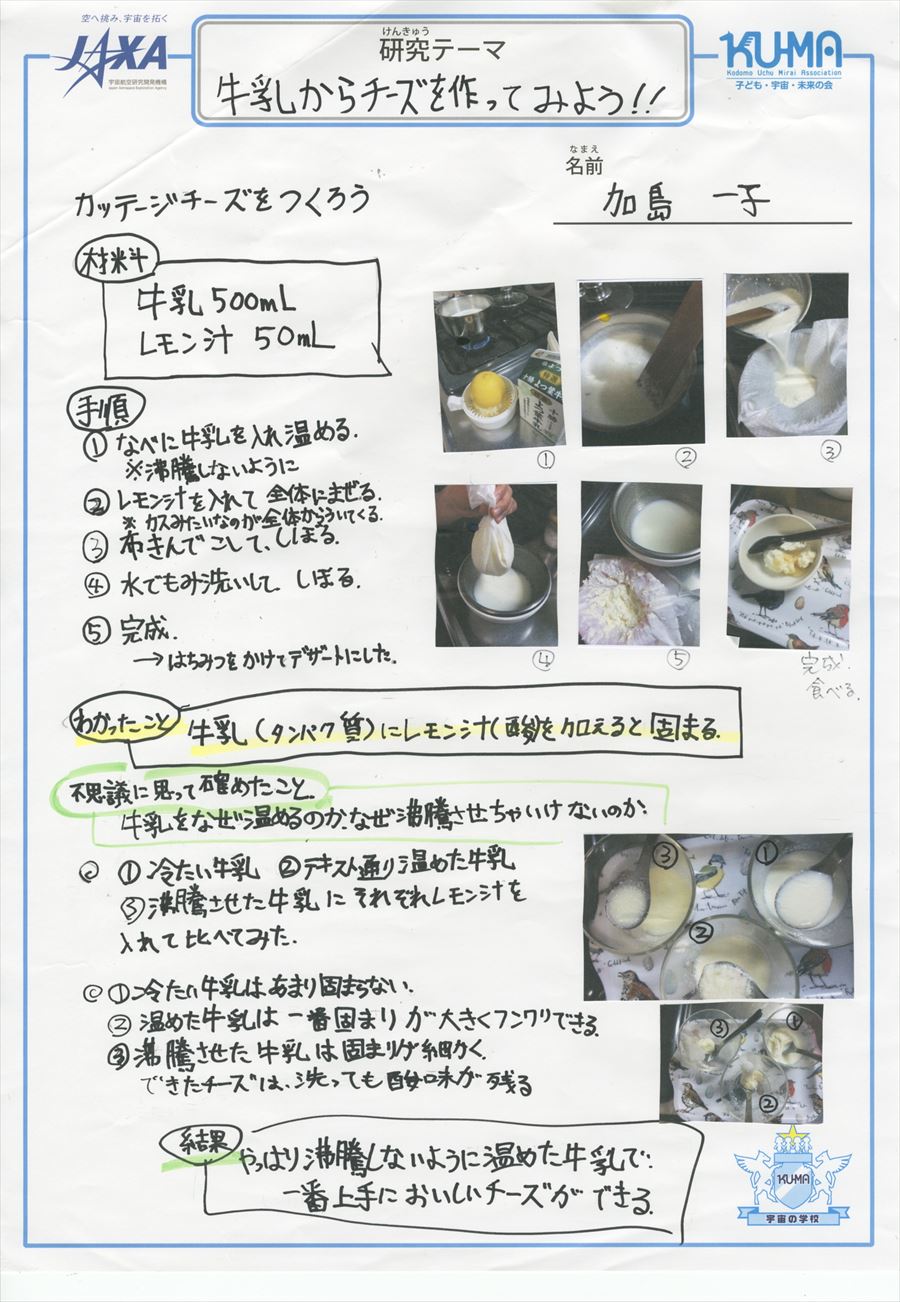 空へ挑み、宇宙を拓く
JAXA
宇宙航空研究開発機構
Japan Aerospace Exploration Agency
けんきゅう
研究テーマ
牛乳からチーズを作ってみよう!!
KU-MA
Kodomo Uchu Mirai Association
子ども・宇宙・未来の会
なまえ
名前
加島 一子
カッテージチーズをつくろう
材料
牛乳 500mL
レモン汁 50mL
手順
① なべに牛乳を入れ温める.
※沸騰しないように
② レモン汁を入れて全体にまぜる.
※ カスみたいなのが全体からういてくる.
③ 布きんでこして、しぼる.
④ 水でもみ洗いして しぼる.
⑤ 完成.
→はちみつをかけてデザートにした.
①
②
③
④
⑤
完成.
食べる.
わかったこと
牛乳(タンパク質)にレモン汁(酸)を加えると固まる.
不思議に思って確めたこと.
牛乳をなぜ温めるのか.なぜ沸騰させちゃいけないのか.
① 冷たい牛乳 ②テキスト通り温めた牛乳
③沸騰させた牛乳にそれぞれレモン汁を
入れて比べてみた.
③
①
②
①冷たい牛乳はあまり固まらない.
② 温めた牛乳は一番固まりが大きくフンワリできる.
③沸騰させた牛乳は固まりが細かく.
できたチーズは、洗っても酸味が残る
③
①
②
結果
やっぱり沸騰しないように温めた牛乳で.
一番上手においしいチーズができる.
KU-MA
宇宙の学校